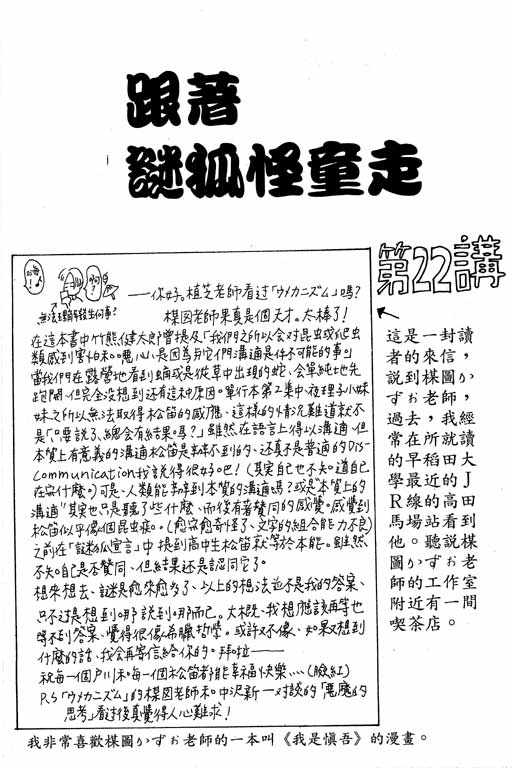 跟著
謎狐怪童走
第22講
啊?
無法理解發生何事?
——你好。植芝老師看過「ウメカニズム」嗎?
楳図老師果真是個天才。太棒了!
在這本書中竹熊健太郎曾提及「我們之所以会对昆虫或爬虫
類感到害怕和噁心、是因為与它們溝通是件不可能的事。」
當我們在露營地看到蛹或是從草中出現的蛇、会單純地先
跑開、但完全沒想到还有這种原因。單行本第2集中、夜理子小妹
妹之所以無法取得松笛的感應、這樣的情況難道就不
是「只要說了、總会有結果嗎?」雖然在語言上得以溝通、但
本質上有意義的溝通松笛是辦不到的、还真不是普通的Dis-
Communication我說得很好吧!(其实自己也不知道自己
在寫什麼。)可是、人類能辦到本質的溝通嗎?或是"本質上的
溝通"其实也只是聽了些什麼、而後有著贊同的感覺。感覺到
松笛似乎像個昆虫疾。(愈寫愈奇怪了、文字的組合能力不良)
之前在「謎狐宣言」中提到高中生松笛就等於本能。雖然
不知自己是否贊同、但結果还是認同它了。
想來想去、謎是愈來愈多了、以上的想法並不是我的答案、
只不过是想到哪說到哪而已。大概、我想應該再等也
等不到答案、覺得很像希臘哲學。或許又不像、如果又想到
什麼的話、我会再寄信給你的。拜啦——
祝每一個戶川和每一個松笛都能幸福快樂…(臉紅)
P.S「ウメカニズム」的楳図老師和中沢新一対談的「惡魔的
思考」看过後真覺得人心難求!
這是一封讀
者的來信，
說到楳圖か
ずお老師，
過去，我經
常在所就讀
的早稻田大
學最近的J
R線的高田
馬場站看到
他。聽說楳
圖かずお老
師的工作室
附近有一間
喫茶店。
我非常喜歡楳圖かずお老師的一本叫《我是慎吾》的漫畫。